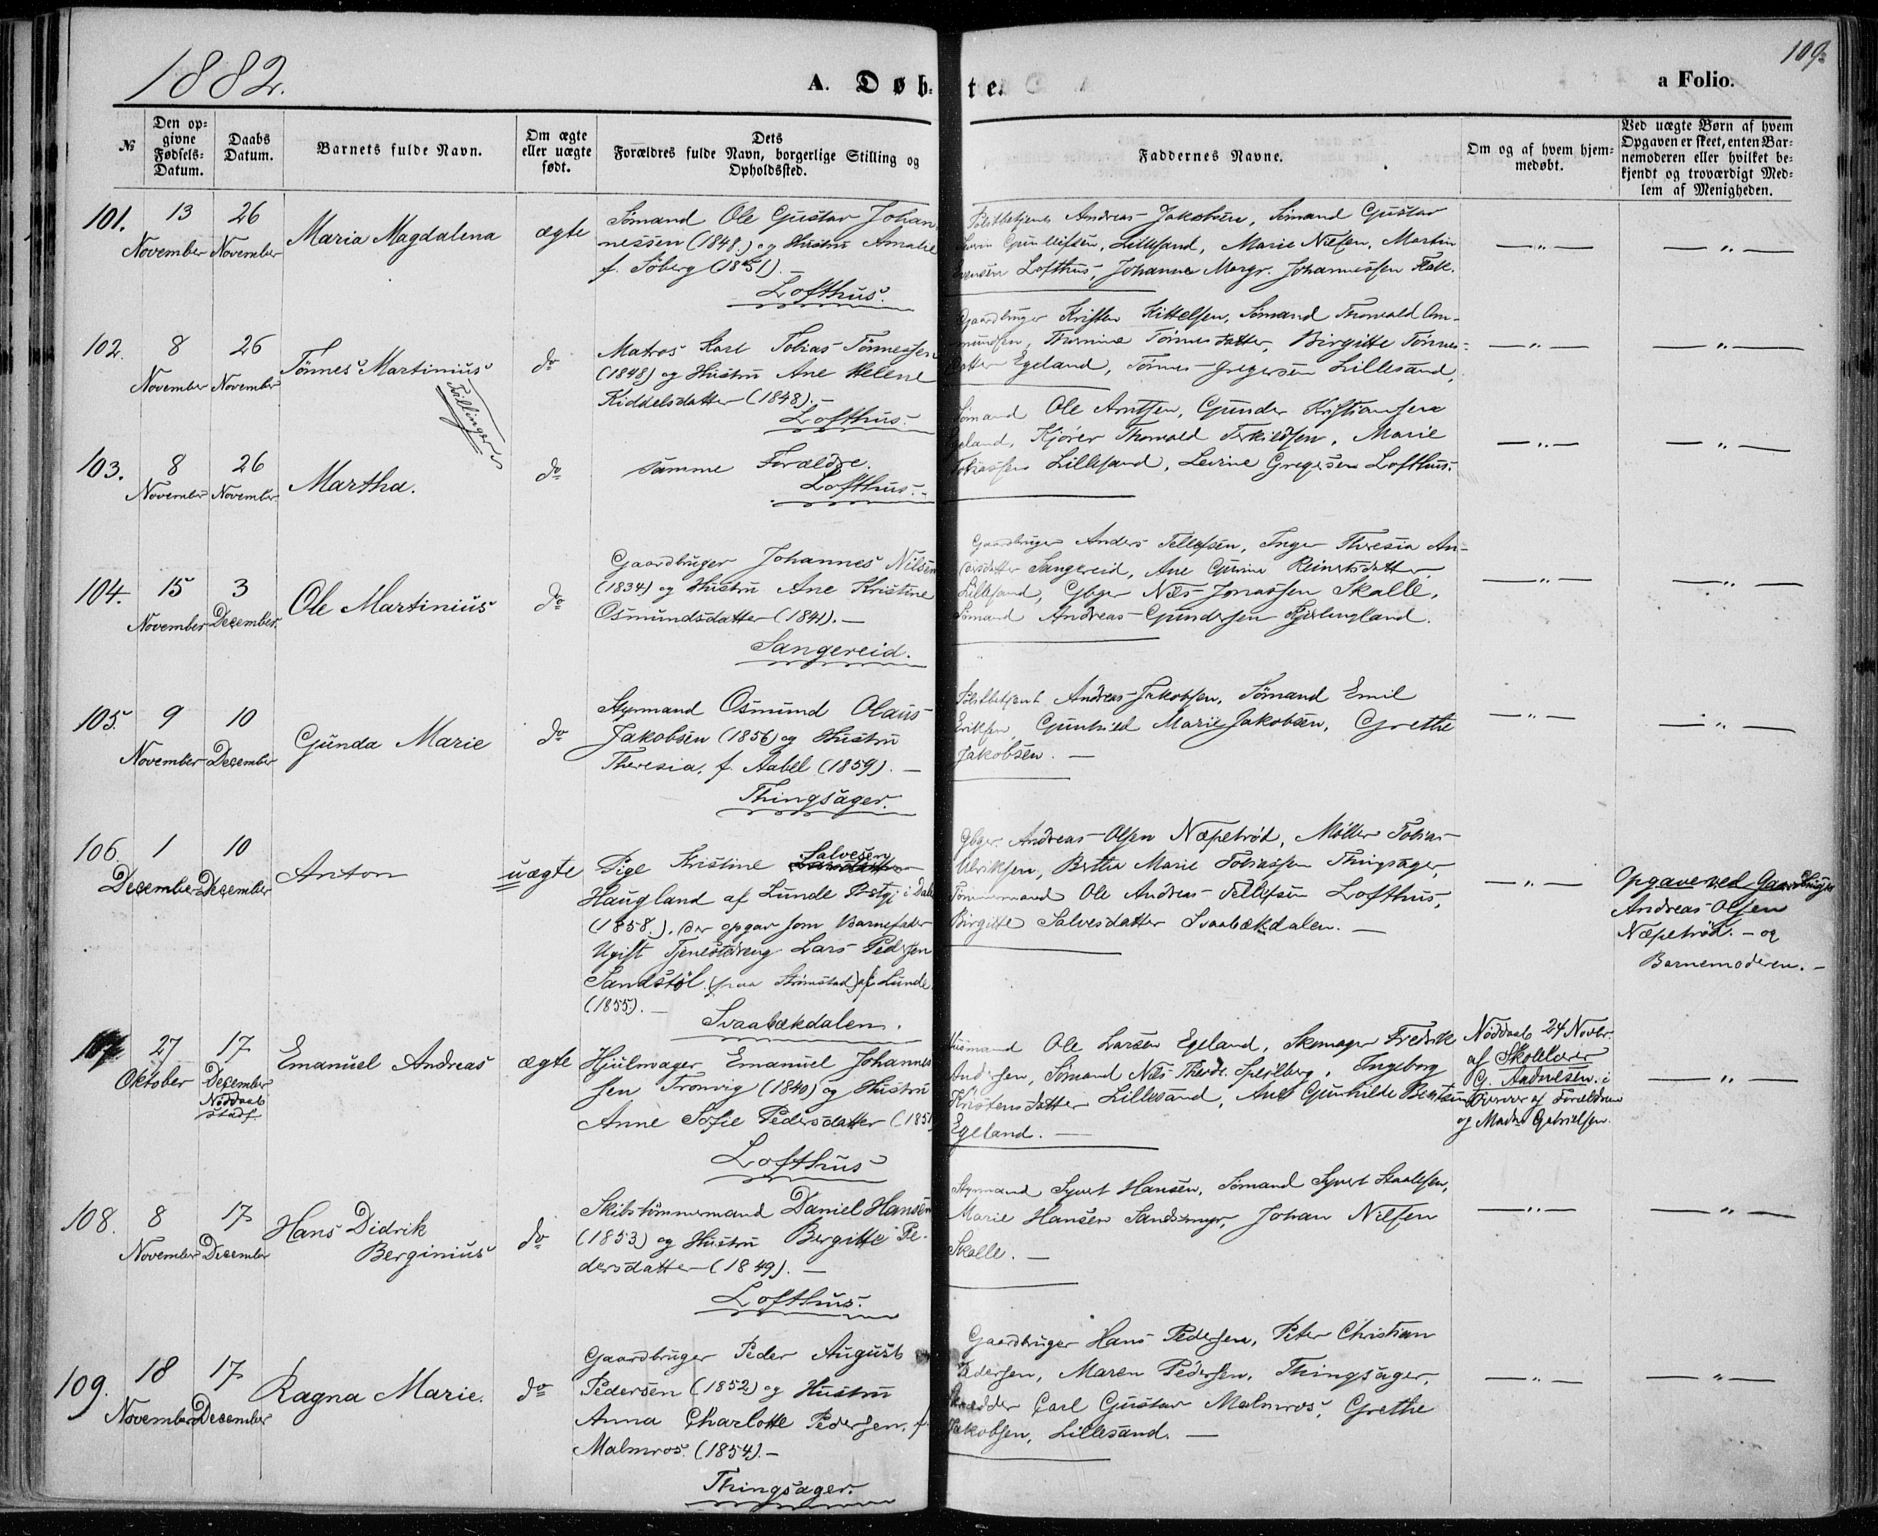 1882.
A. Døb-
te.
a Folio.
109.
№
Den op-
givne
Fødsels-
Datum.
Daabs
Datum.
Barnets fulde Navn.
Om ægte
eller uægte
født.
Dets
Forældres fulde Navn, borgerlige Stilling og
Opholdssted.
Faddernes Navne.
Om og af hvem hjem-
medøbt.
Ved uægte Børn af hvem
Opgaven er skeet, enten Bar-
nemoderen eller hvilket be-
kjendt og troværdigt Med-
lem af Menigheden.
101.
13
November
26
November
Maria Magdalena
ægte
Sömand Ole Gustav Johan
nessen (1848.) og Hustru Amalie
f. Söberg (1851).
Lofthus.
Andreas Jakobsen, Sömand Gustav
Gunulfsen, Lillesand, Marie Nilsen, Martin
Lofthus, Johanne Margr. Johannessen
— „ —
— „ —
102.
8
November
26
November
Tönnes Martinius
Tvillinger
do
Matros Karl Tobias Tönnessen
(1848) og Hustru Ane Helene
Kiddelsdatter (1848). —
Lofthus.
Gaardbruger Kristen Kittelsen, Sömand Thorvald Om-
mundsen, Tönnesdatter, Birgitte Tönnes-
datter Egeland, Tönnes Gregersen Lillesand,
— „ —
— „ —
103.
8
November
26
November
Martha.
do
samme Forældre.
Lofthus. -
Sömand Ole Arntsen, Gunder Kristiansen
Egeland, Kjörer Thorvald Terkildsen, Marie
Tobiassen Lillesand, Levine Gregersen Lofthus.
— „ —
— „ —
104.
15
November
3
December.
Ole Martinius
do
Gaardbruger Johannes Nilsen
(1834) og Hustru Ane Kristine
Osmundsdatter (1841). —
Sangereid.
Gaardbruger Anders Tellefsen, Inger Theresia An-
dersdatter Sangereid, Ane Gurine Reinertsdatter,
Lillesand, Gbger Nils Jonassen Skalle,
Sömand Andreas Gundersen
— „ —
— „ —
105.
9
November
10
December
Gunda Marie
do
Styrmand Osmund Olaus
Jakobsen (1856) og Hustru
Theresia, f. Aabel (1859). —
Thingsager.
Andreas Jakobsen, Sömand Emil
Eriksen, Gunhild Marie Jakobsen, Grethe
Jakobsen. —
— „ —
— „ —
106.
1
December
10
December
Anton
uægte
Salvesen
Pige Kristine
Haugland af Lunde Pstgj. i Dal
(1858.). Der opgav som Barnefader
Ugift Tjenestdreng Lars Pedersen
Sandstöl (paa Strömstad) af Lunde
(1855). —
Svaabækdalen.
Gbger. Andreas Olsen Næpetröd, Möller Tobias
Ulriksen, Berthe Marie Tobiassen Thingsager,
Tömmermand Ole Andreas Tellefsen Lofthus,
Birgitte Salvesdatter Svaabækdalen. —
— „ —
Opgave ved Gaardbruger
Andreas Olsen
Næpetröd. - og
Barnemoderen. -
107.
27
Oktober
17
December
Nöddaab
stadf.
Emanuel Andreas
ægte
Hjulmager Emanuel Johannes
sen Tronvig (1840) og Hustru
Anne Sofie Pedersdatter (1851
Lofthus
Husmand Ole Larsen Egeland, Skomager Fredrik
Andersen, Sömand Nils Thedr. Speilberg, Ingeborg
Kristensdatter Lillesand, Ane Gunhilde Bentsen
Egeland. —
Nöddaab 24 Novbr.
af Skolelærer
G. Aadnesen, i
Nærvær af Forældrene
og Madm Gabrielsen.
— „ —
108.
8
November
17
December
Hans Didrik
Berginius
do
Skibstömmermand Daniel Hansen
(1853) og Hustru Bergitte Pe-
dersdatter (1849). —
Lofthus.
Styrmand Syvert Hansen, Sömand Syvert Staalesen,
Marie Hansen Sandsmyr, Johan Nilsen
Skalle. —
— „ —
— „ —
109.
18
November
17
December
Ragna Marie.
do
Gaardbruger Peder August
Pedersen (1852) og Hustru
Anna Charlotte Pedersen, f.
Malmros. (1854). -
Thingsager.
Gaardbruger Hans Pedersen, Peter Christian
Pedersen, Maren Pedersen, Thingsager,
Skrædder Carl Gustav Malmros, Grethe
Jakobsen, Lillesand. —
— „ —
— „ —